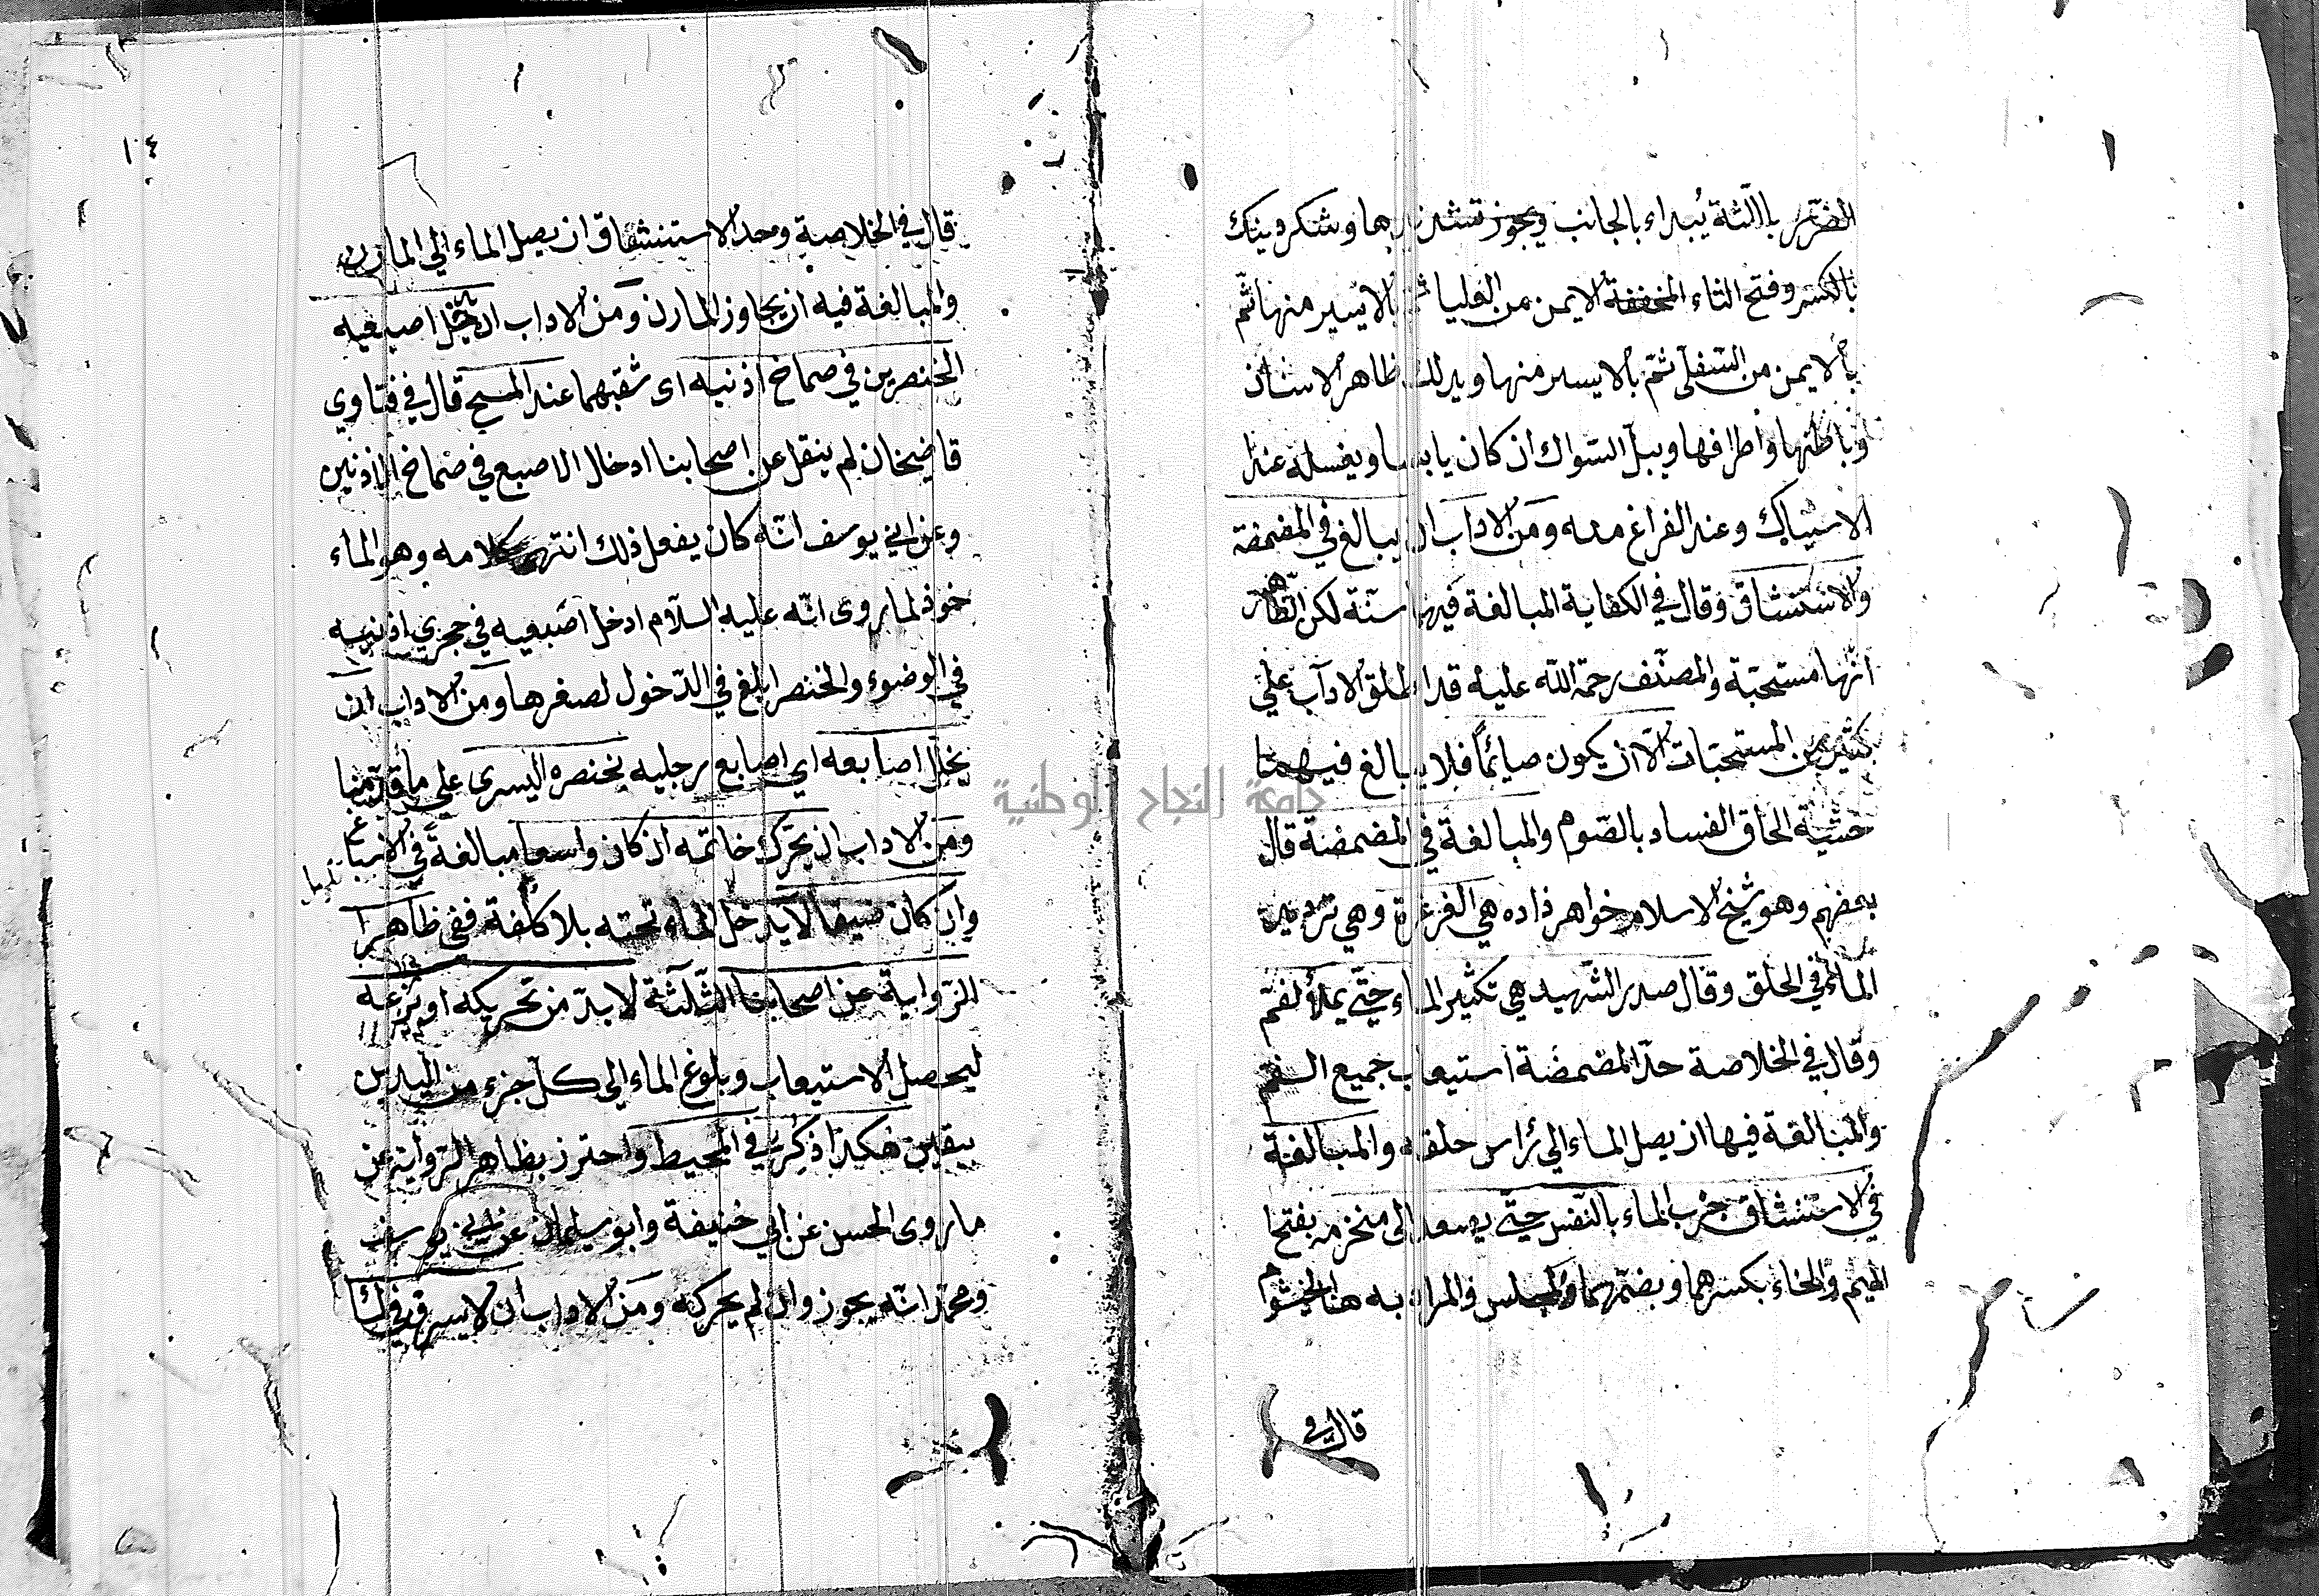 الضرر باللثة يبداء بالجانب ويجوز تشديدها وشكر دينك
بالكسر وفتح الثاء المخففة الايمن من العليا ثم بالايسر منها ثم
بالايمن من السفلى ثم بالايسر منها ويدلك ظاهر الاسنان
وباطنها واطرافها ويبل السواك ان كان يابسا ويغسله عند
الاستياك وعند الفراغ منه ومن الاداب ان يبالغ في المضمضة
والاستنشاق وقال في الكفاية المبالغة فيهما سنة لكن الظاهر
انها مستحبة والمصنف رحمة الله عليه قد اطلق الاداب على
كثير من المستحبات الا ان يكون صائما فلا يبالغ فيهما
خشية الحاق الفساد بالصوم والمبالغة في المضمضة قال
بعضهم وهو شيخ الاسلام خواهر زاده هي الغرغرة وهي ترديد
الماء في الحلق وقال صدر الشهيد هي تكثير الماء حتى يملأ الفم
وقال في الخلاصة حد المضمضة استيعاب جميع الفم
والمبالغة فيها ان يصل الماء الى رأس حلقه والمبالغة
في الاستنشاق جذب الماء بالنفس حتى يصعد الى منخره بفتح
الميم والخاء بكسرهما وبضمهما وكمجلس والمراد به هنا الخيشوم
قال في
١٠٤
قال في الخلاصة وحد الاستنشاق ان يصل الماء الى المارن
والمبالغة فيه ان يجاوز المارن ومن الاداب ان يدخل اصبعيه
الخنصرين في صماخ اذنيه اى ثقبهما عند المسح قال في فتاوى
قاضيخان لم ينقل عن اصحابنا ادخال الاصبع في صماخ الاذنين
وعن ابي يوسف انه كان يفعل ذلك انتهى كلامه وهو الماء
خوذ لما روى انه عليه السلام ادخل اصبعيه في حجري اذنيه
في الوضوء والخنصر ابلغ في الدخول لصغرها ومن الاداب ان
يخلل اصابعه اي اصابع رجليه بخنصره اليسرى على ما قدمنا
ومن الاداب ان يحرك خاتمه ان كان واسعا مبالغة في الاسباغ
وان كان ضيقا لا يدخل الماء تحته بلا كلفة ففي ظاهر
الرواية عن اصحابنا الثلثة لا بد من تحريكه او نزعه
ليحصل الاستيعاب وبلوغ الماء الى كل جزء من اليدين
بيقين هكذا ذكر في المحيط واحترز بظاهر الرواية عن
ما روى الحسن عن ابي حنيفة وابو سليمان عن ابي يوسف
ومحمد انه يجوز وان لم يحركه ومن الاداب ان لا يسرف في الماء
جامعة النجاح الوطنية